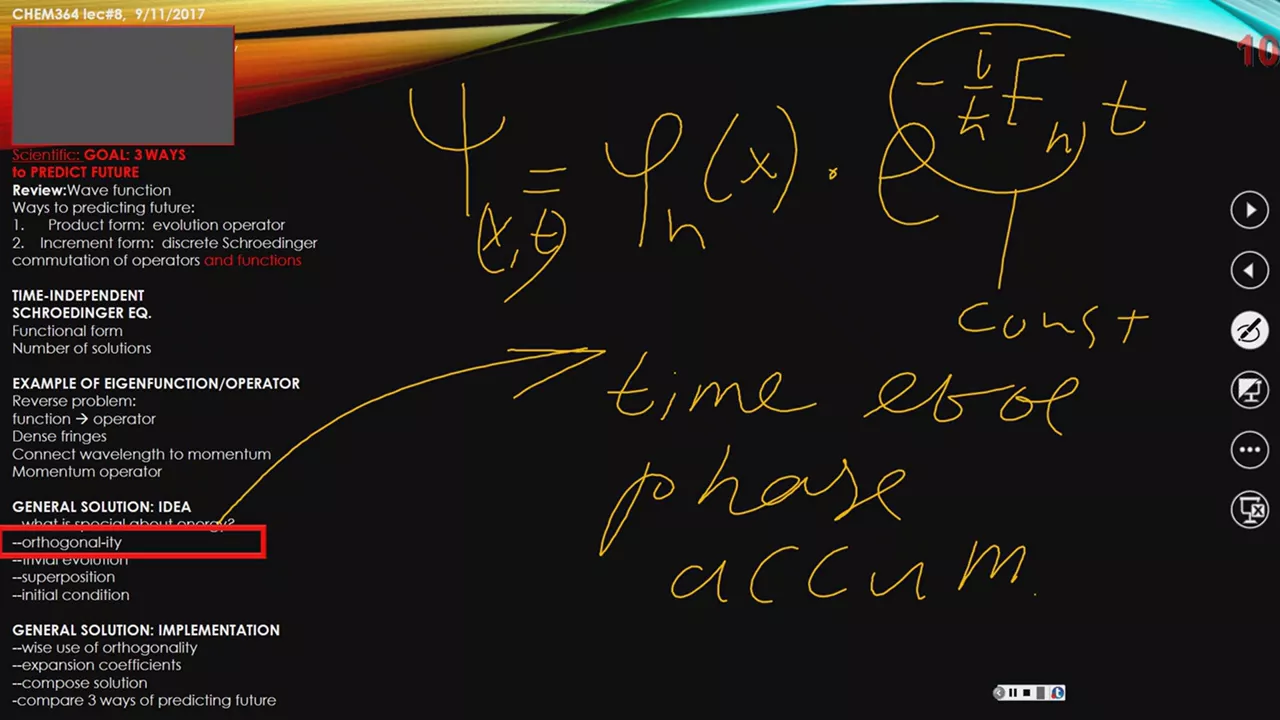 CHEM364 lec#8, 9/11/2017
10
Scientific: GOAL: 3 WAYS
to PREDICT FUTURE
Review:Wave function
Ways to predicting future:
1. Product form: evolution operator
2. Increment form: discrete Schroedinger
commutation of operators and functions
TIME-INDEPENDENT
SCHROEDINGER EQ.
Functional form
Number of solutions
EXAMPLE OF EIGENFUNCTION/OPERATOR
Reverse problem:
function → operator
Dense fringes
Connect wavelength to momentum
Momentum operator
GENERAL SOLUTION: IDEA
--what is special about energy?
--orthogonal-ity
--trivial evolution
--superposition
--initial condition
GENERAL SOLUTION: IMPLEMENTATION
--wise use of orthogonality
--expansion coefficients
--compose solution
-compare 3 ways of predicting future
Ψ(x,t) = φₙ(x) · e^(-i/ħ Eₙ t)
const
time evol
phase
accum.